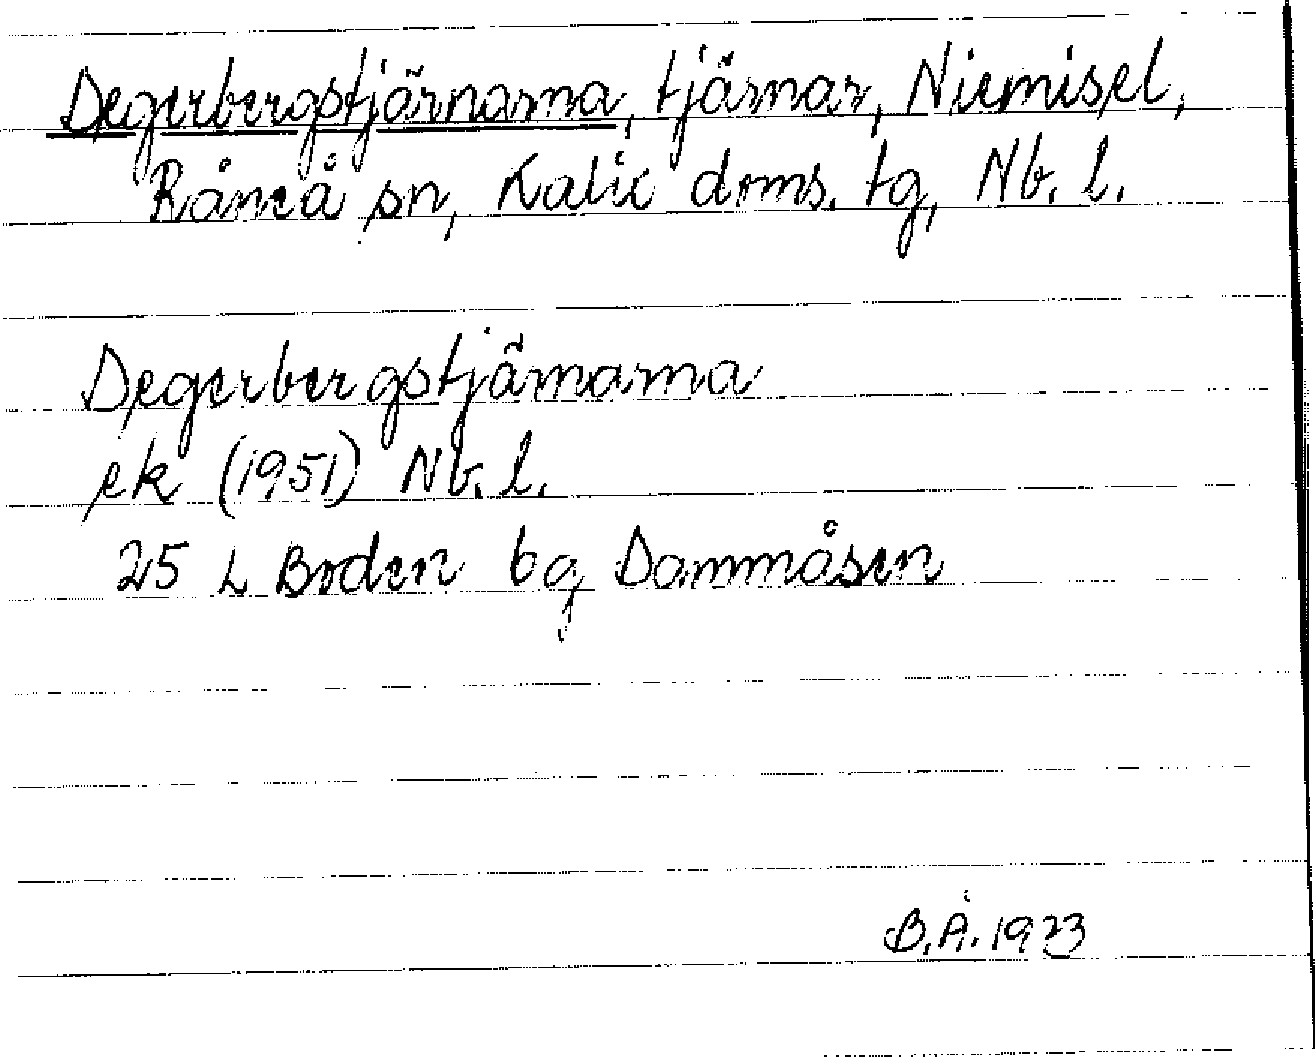 Degerbergstjärnarna, tjärnar, Niemisel,
Råneå sn, Kalix doms. tg, Nb. l.
Degerbergstjärnarna
ek (1951) Nb. l.
25 L Boden bg Dammåsen
B.Å. 1973